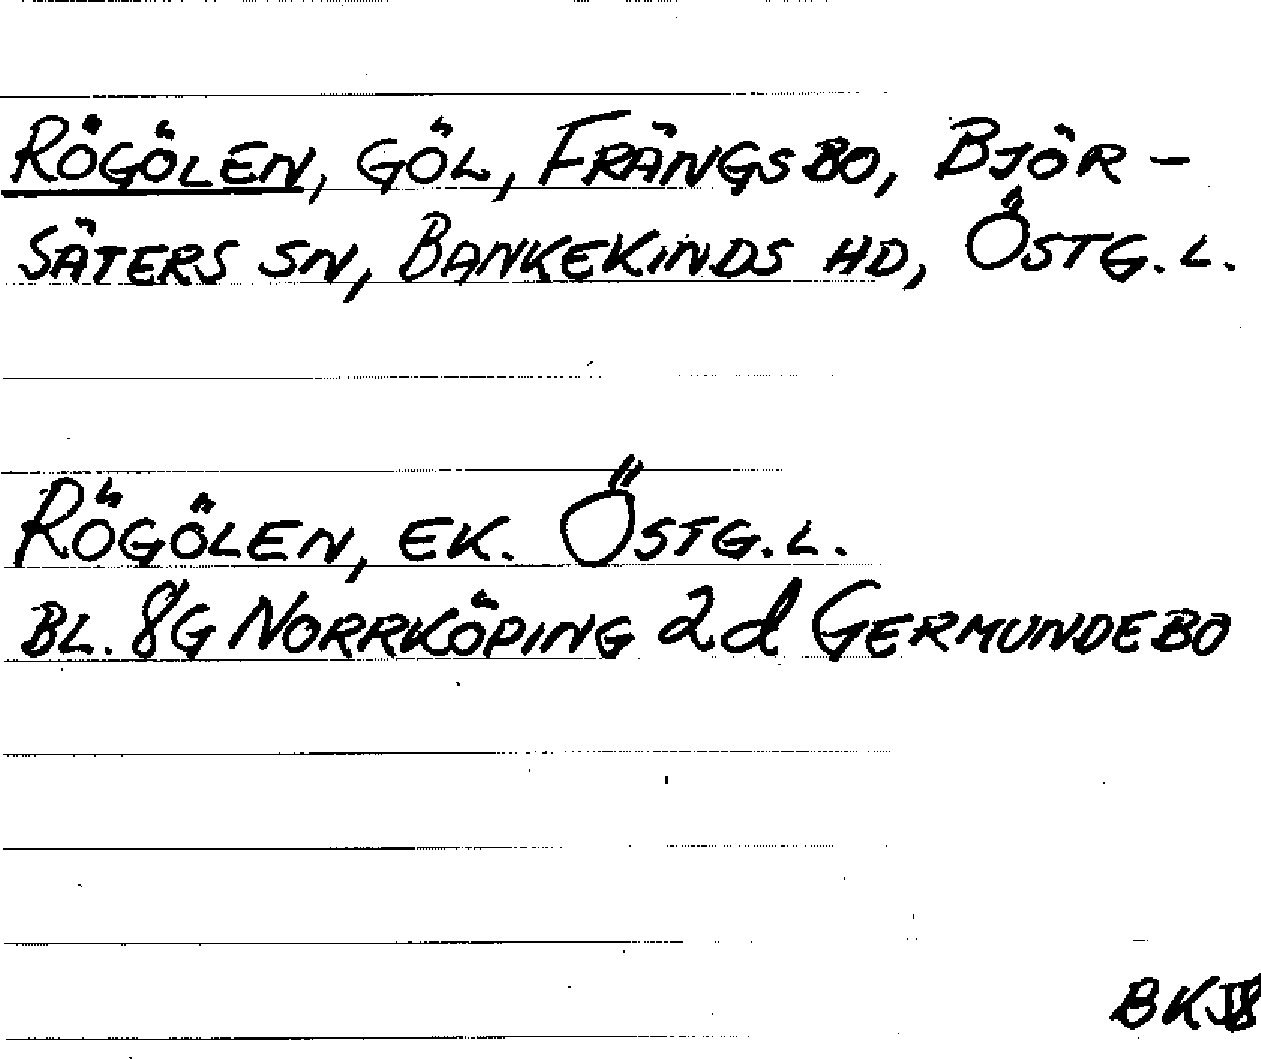 RÖGÖLEN, GÖL, FRÄNGSBO, BJÖR-
SÄTERS SN, BANKEKINDS HD, ÖSTG. L.
RÖGÖLEN, EK. ÖSTG. L.
BL. 8G NORRKÖPING 2d GERMUNDEBO